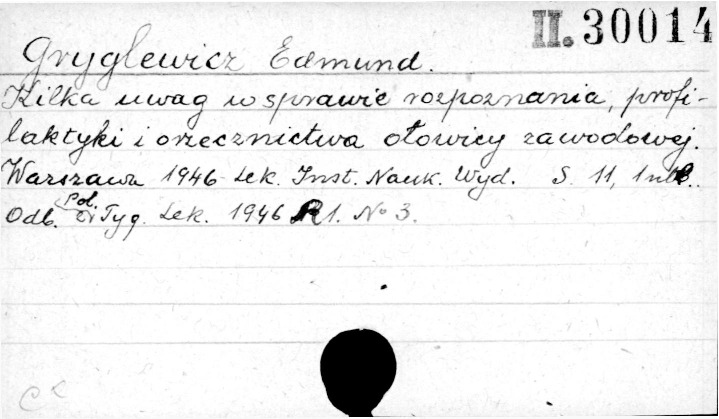 II. 30014
Gryglewicz Edmund.
Kilka uwag w sprawie rozpoznania, profi-
laktyki i orzecznictwa ołowicy zawodowej.
Warszawa 1946 Lek. Inst. Nauk. Wyd. S. 11, 1 nlb.
Odb. z Pol. Tyg. Lek. 1946 R 1. No 3.